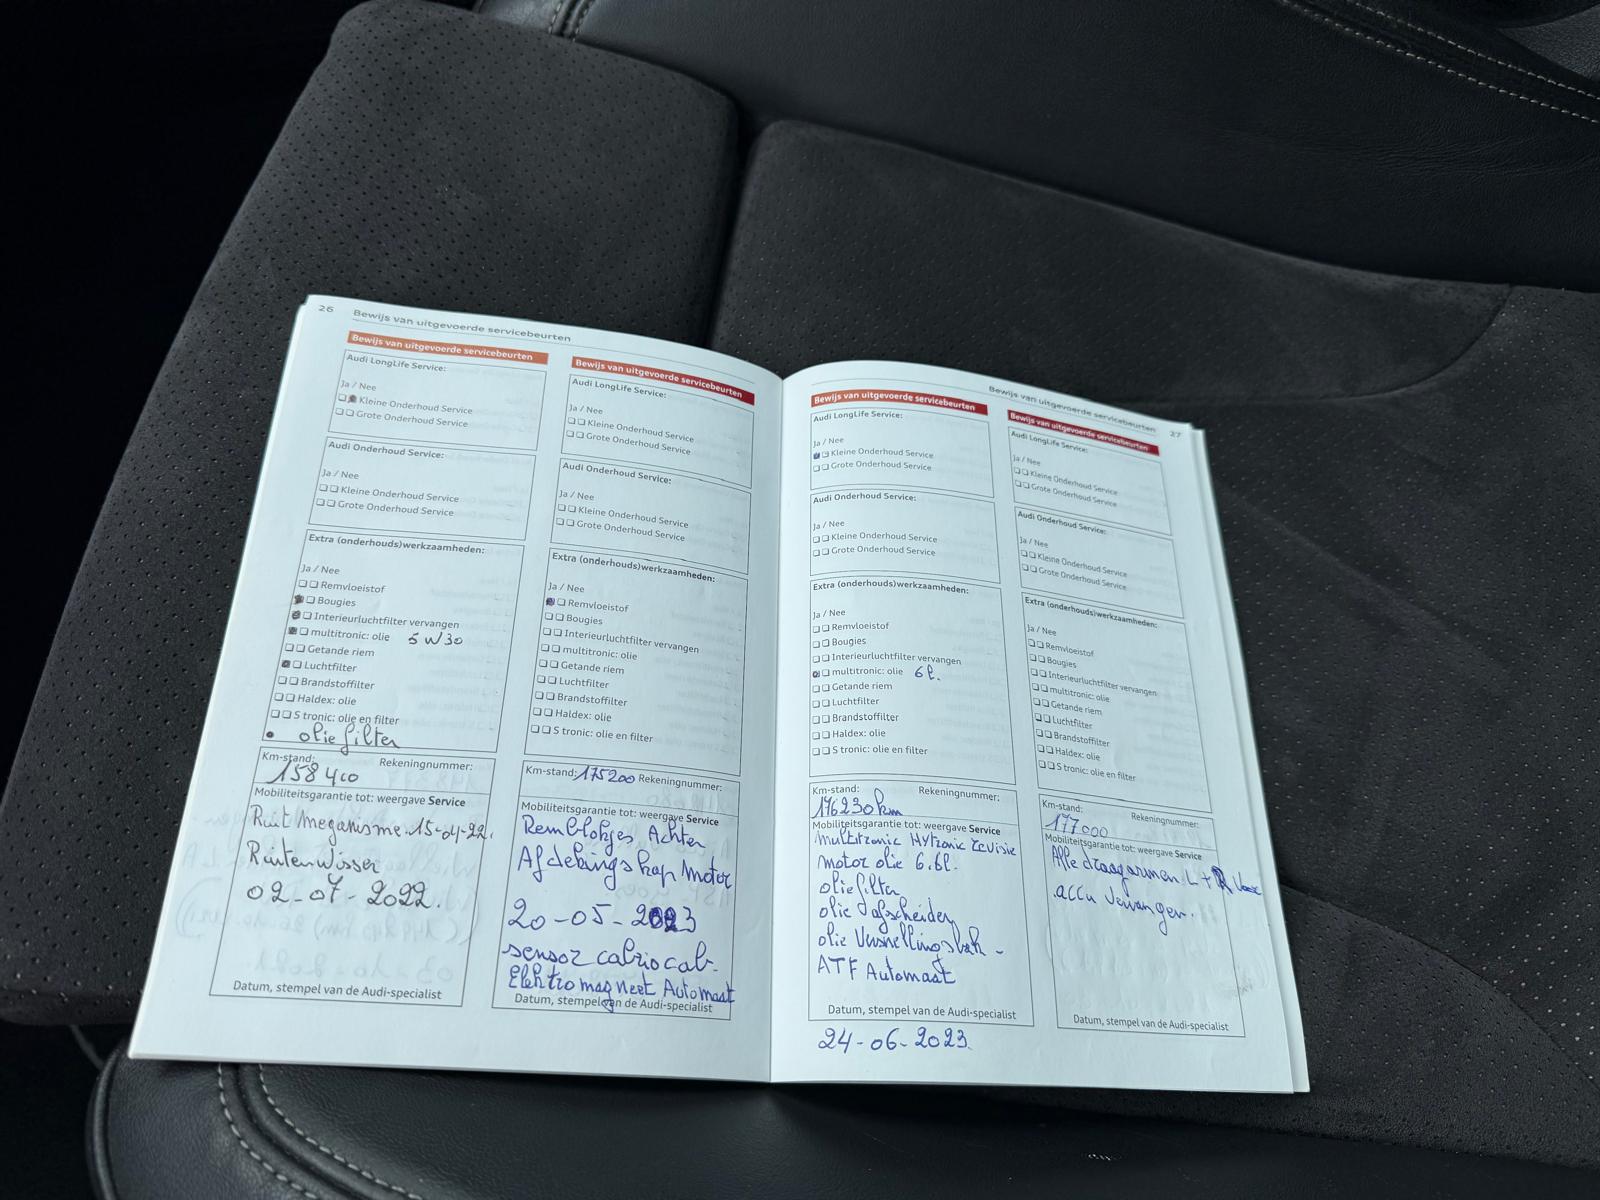 26 Bewijs van uitgevoerde servicebeurten
Bewijs van uitgevoerde servicebeurten
Audi LongLife Service:
Ja / Nee
Kleine Onderhoud Service
Grote Onderhoud Service
Audi Onderhoud Service:
Ja / Nee
Kleine Onderhoud Service
Grote Onderhoud Service
Extra (onderhouds)werkzaamheden:
Ja / Nee
Remvloeistof
Bougies
Interieurluchtfilter vervangen
multitronic: olie 5W30
Getande riem
Luchtfilter
Brandstoffilter
Haldex: olie
S tronic: olie en filter
• oliefilter
Km-stand: Rekeningnummer:
158400
Mobiliteitsgarantie tot: weergave Service
Ruit Meganisme 15-04-22.
Ruitenwisser
02-07-2022.
Datum, stempel van de Audi-specialist
Bewijs van uitgevoerde servicebeurten
Audi LongLife Service:
Ja / Nee
Kleine Onderhoud Service
Grote Onderhoud Service
Audi Onderhoud Service:
Ja / Nee
Kleine Onderhoud Service
Grote Onderhoud Service
Extra (onderhouds)werkzaamheden:
Ja / Nee
Remvloeistof
Bougies
Interieurluchtfilter vervangen
multitronic: olie
Getande riem
Luchtfilter
Brandstoffilter
Haldex: olie
S tronic: olie en filter
Km-stand: 175200 Rekeningnummer:
Mobiliteitsgarantie tot: weergave Service
Remblokjes Achter
Afdekingskap Motor
20-05-2023
sensor cabrio cab.
Elektromagneet Automaat
Datum, stempel van de Audi-specialist
Bewijs van uitgevoerde servicebeurten 27
Bewijs van uitgevoerde servicebeurten
Audi LongLife Service:
Ja / Nee
Kleine Onderhoud Service
Grote Onderhoud Service
Audi Onderhoud Service:
Ja / Nee
Kleine Onderhoud Service
Grote Onderhoud Service
Extra (onderhouds)werkzaamheden:
Ja / Nee
Remvloeistof
Bougies
Interieurluchtfilter vervangen
multitronic: olie 6 l.
Getande riem
Luchtfilter
Brandstoffilter
Haldex: olie
S tronic: olie en filter
Km-stand: Rekeningnummer:
176230km
Mobiliteitsgarantie tot: weergave Service
Multitronic Hytronic revisie
Motor olie 6.6l.
oliefilter
olie afscheider
olie Versnellingsbak -
ATF Automaat
Datum, stempel van de Audi-specialist
24-06-2023.
Bewijs van uitgevoerde servicebeurten
Audi LongLife Service:
Ja / Nee
Kleine Onderhoud Service
Grote Onderhoud Service
Audi Onderhoud Service:
Ja / Nee
Kleine Onderhoud Service
Grote Onderhoud Service
Extra (onderhouds)werkzaamheden:
Ja / Nee
Remvloeistof
Bougies
Interieurluchtfilter vervangen
multitronic: olie
Getande riem
Luchtfilter
Brandstoffilter
Haldex: olie
S tronic: olie en filter
Km-stand: Rekeningnummer:
177000
Mobiliteitsgarantie tot: weergave Service
Alle draagarmen L + R
accu Vervangen.
Datum, stempel van de Audi-specialist